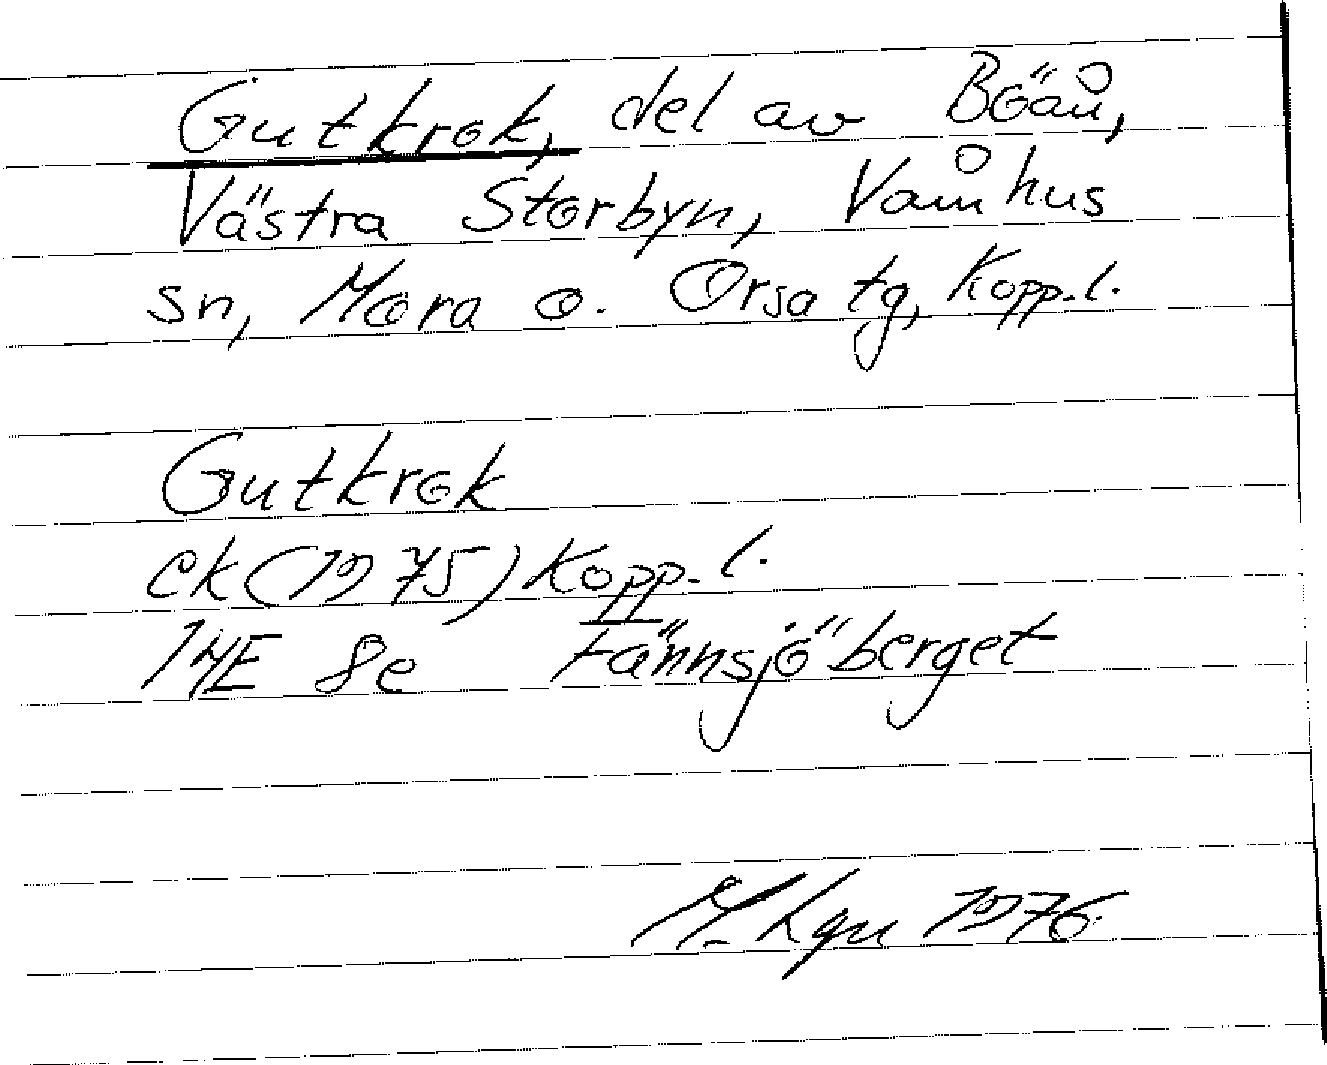 Gutkrok, del av Böån,
Västra Storbyn, Våmhus
sn, Mora o. Orsa tg, Kopp. l.
Gutkrok
ek (1975) Kopp. l.
14E 8e Fännsjöberget
M. Lgn 1976